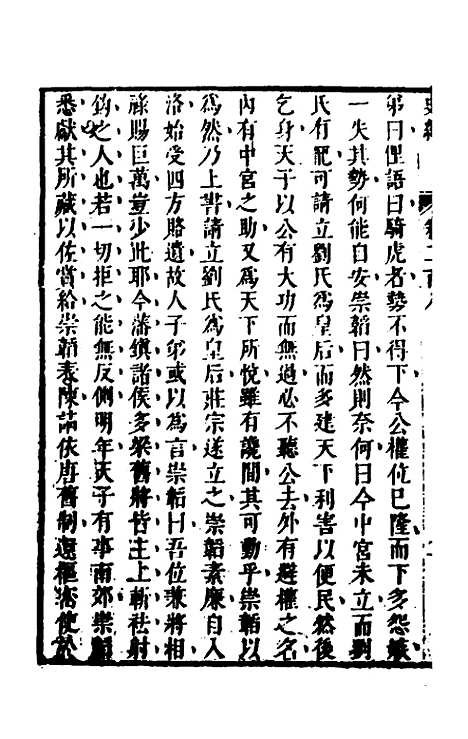 史緯 卷二百八
弟曰俚語曰騎虎者勢不得下今公權位已隆而下多怨嫉
一失其勢何能自安崇韜曰然則奈何曰今中宮未立而劉
氏有寵可請立劉氏爲皇后而多建天下利害以便民然後
乞身天子以公有大功而無過必不聽公去外有避權之名
內有中宮之助又爲天下所悅雖有讒間其可動乎崇韜以
爲然乃上書請立劉氏爲皇后莊宗遂立之崇韜素廉自入
洛始受四方賂遺故人子弟或以爲言崇韜曰吾位兼將相
祿賜巨萬豈少此耶今藩鎮諸侯多梁舊將皆主上斬祛射
鈎之人也若一切拒之能無反側明年天子有事南郊崇韜
悉獻其所藏以佐賞給崇韜素陳請依唐舊制還樞密使於